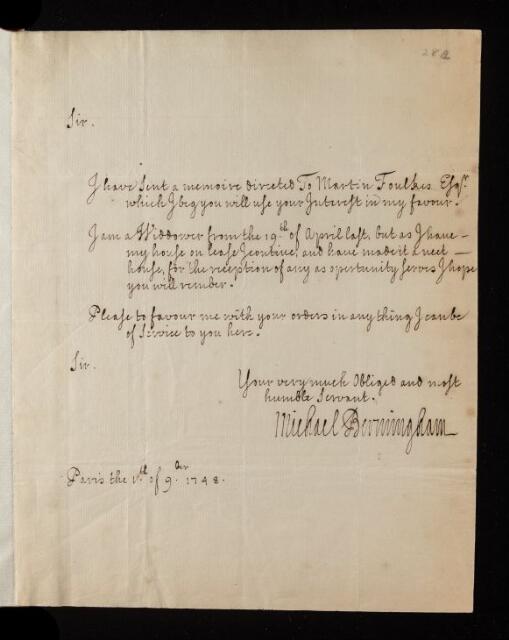 282
Sir.
I have Sent a memoire directed To Martin Foulkes Esqr.
which I beg you will use your Interest in my favour.
I am a Widdower from the 19th of April last, but as I have
my house on lease I continue, and have made it a neet
house, for the reception of any as opertunity serves I hope
you will rember.
Please to favour me with your orders in any thing I can be
of Service to you here.
Sir.
Your very much Obliged and most
humble Servant.
Michael Bermingham
Paris the 1th of 9ber 1748.